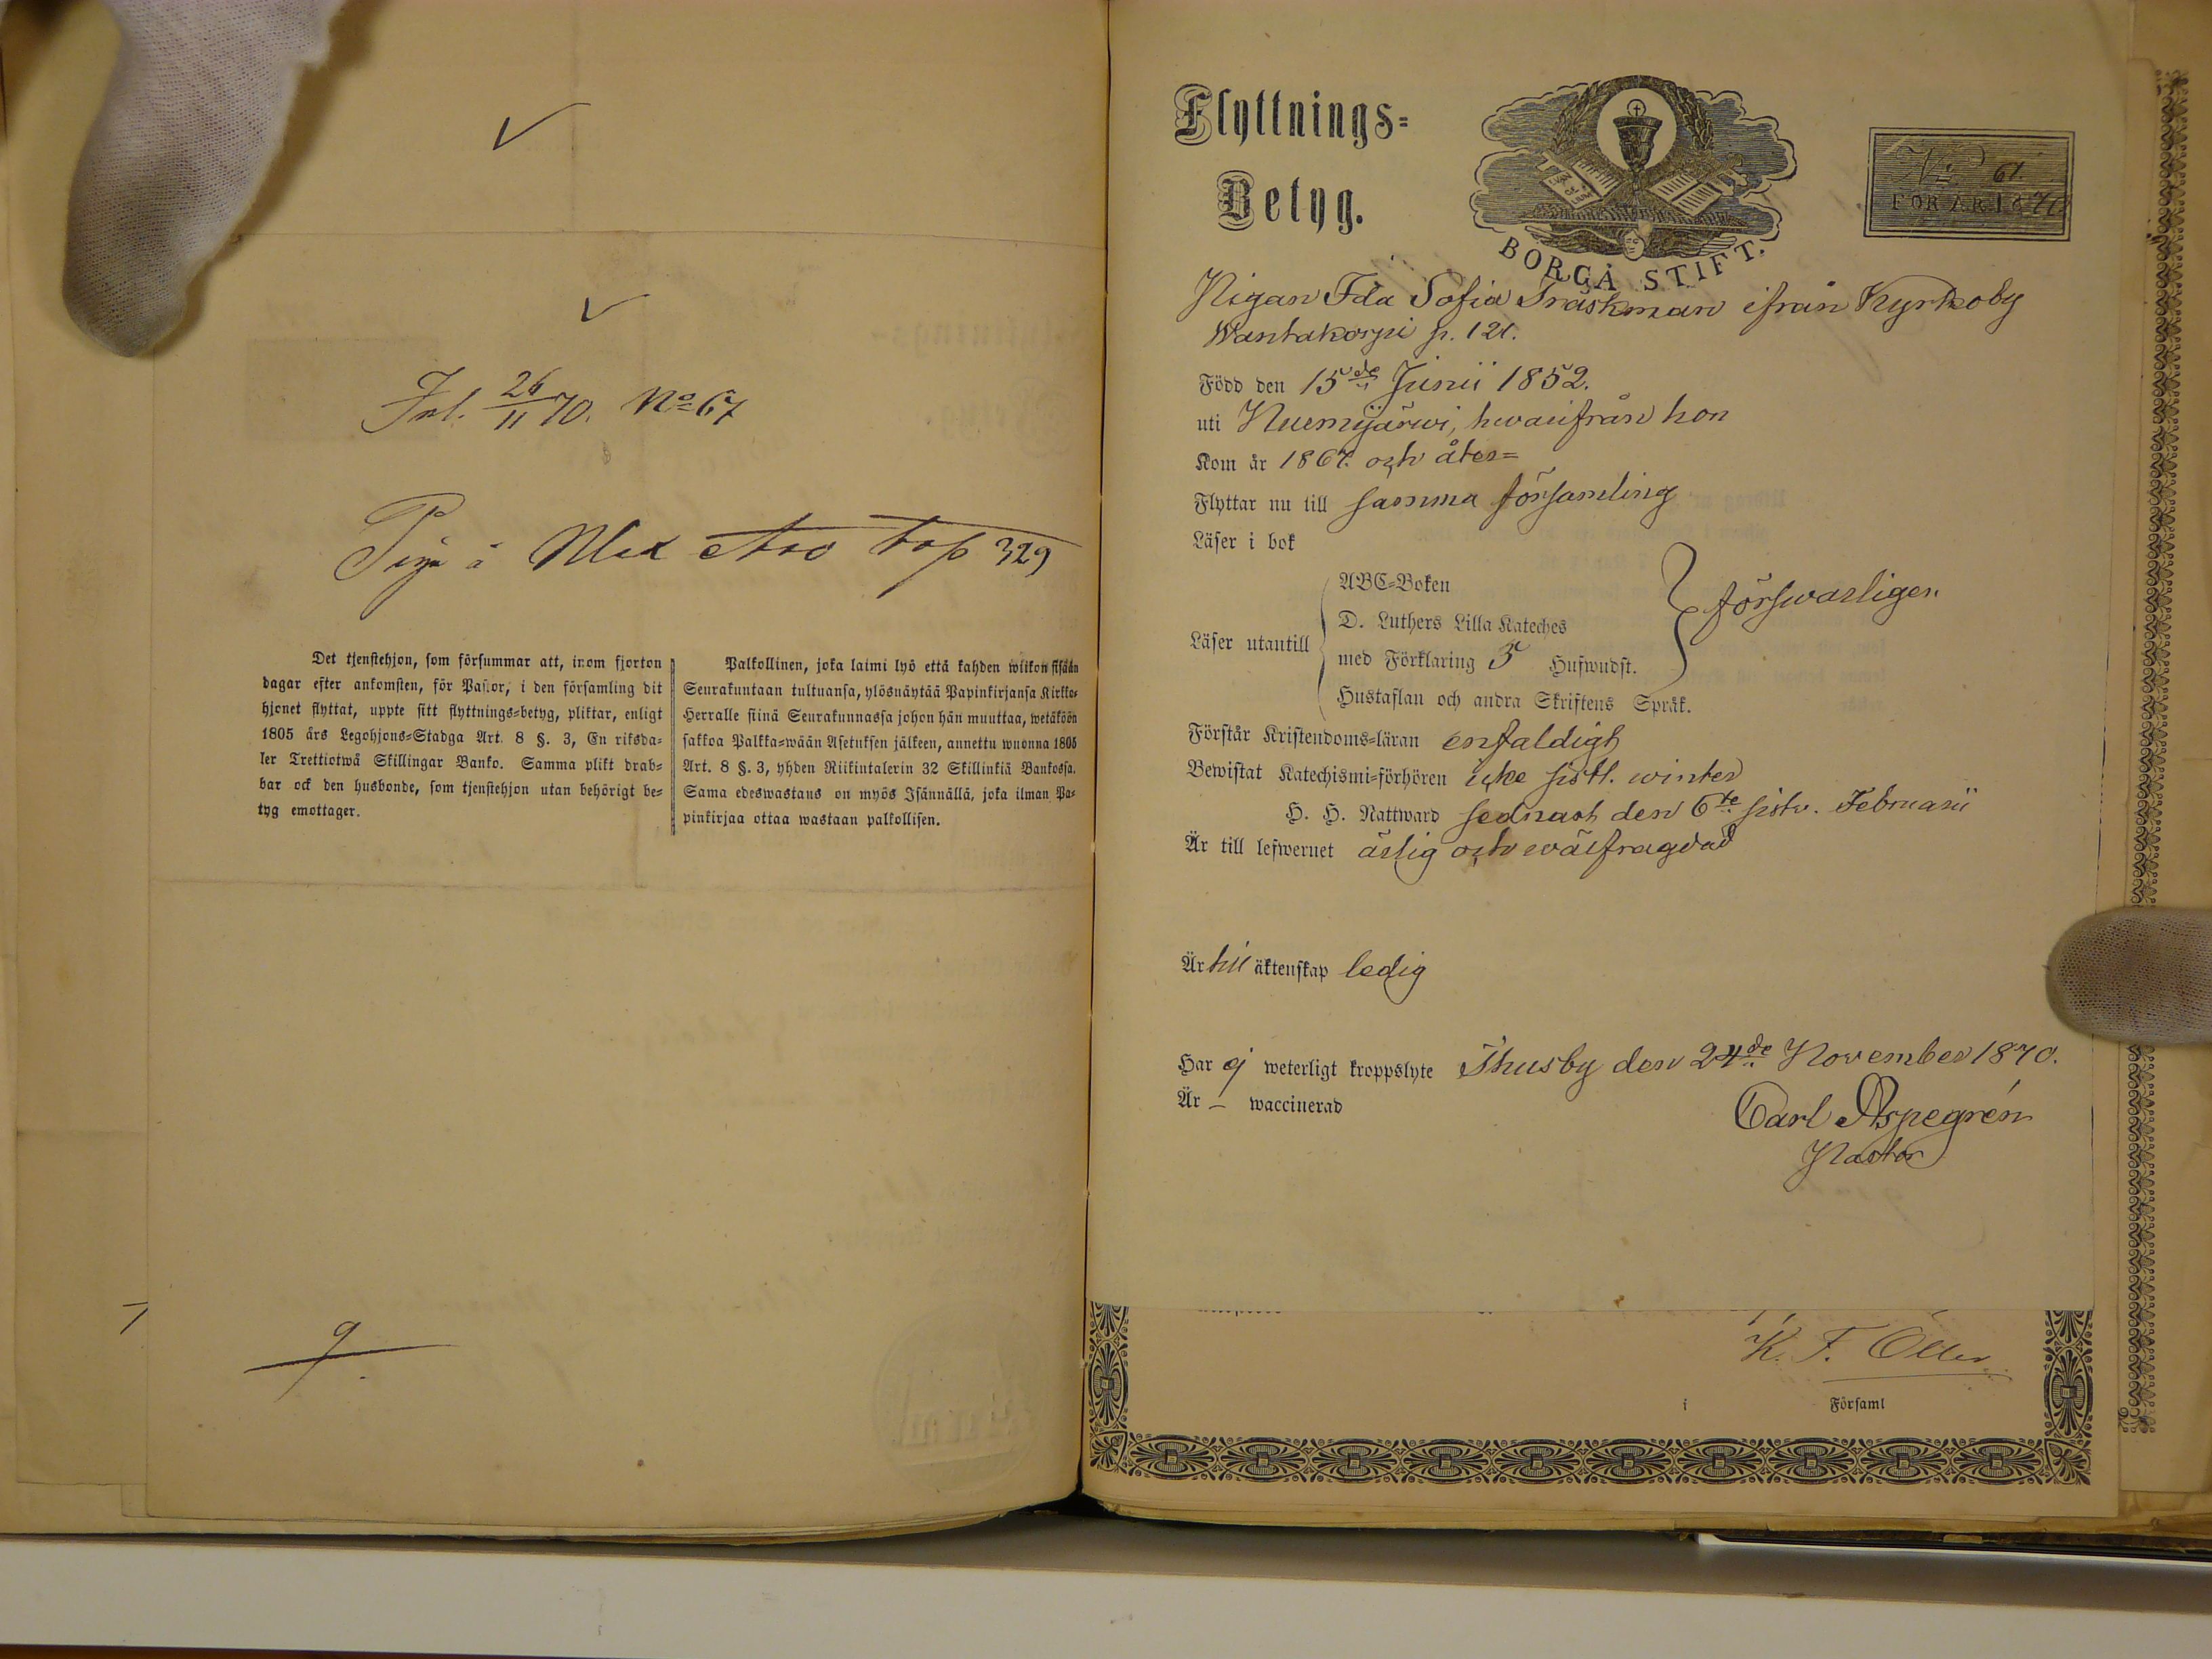 ✓
✓
Inl. 26/11 70. No 67
Piga å
329
Det tjenstehjon, som försummar att, inom fjorton
dagar efter ankomsten, för Pastor, i den församling dit
hjonet flyttat, uppte sitt flyttnings=betyg, pliktar, enligt
1805 års Legohjons=Stadga Art. 8 §. 3, En riksda=
ler Trettiotwå Skillingar Banko. Samma plikt drab=
bar ock den husbonde, som tjenstehjon utan behörigt be=
tyg emottager.
Palkollinen, joka laimi lyö että kahden wiikon sisään
Seurakuntaan tultuansa, ylösnäytää Papinkirjansa Kirkko=
Herralle siinä Seurakunnassa johon hän muuttaa, wetäköön
sakkoa Palkka=wään Asetuksen jälkeen, annettu wuonna 1805
Art. 8 §. 3, yhden Riikintalerin 32 Skillinkiä Bankossa.
Sama edeswastaus on myös Isännällä, joka ilman Pa=
pinkirjaa ottaa wastaan palkollisen.
9
Flyttnings=
Betyg.
BORGÅ STIFT.
No 61
FÖR ÅR 1870
Pigan Ida Sofia Träskman ifrån Kyrkoby
Wantakorpi p. 121.
Född den 15de Junii 1852.
uti Nurmijärwi, hwarifrån hon
Kom år 1867. och åter=
Flyttar nu till samma församling
Läser i bok
Läser utantill
ABC=Boken
D. Luthers Lilla Kateches
med Förklaring 5 Hufwudst.
Hustaflan och andra Skriftens Språk.
försvarligen
Förstår Kristendoms=läran enfaldigt
Bewistat Katechismi=förhören icke sistl. winter
H. H. Nattward sednast den 6te sistv. Februarii
Är till lefwernet ärlig och wälfrägdad
Är till äktenskap ledig
Har ej weterligt kroppslyte Thusby den 24de November 1870.
Är – waccinerad
Carl Aspegrén
Pastor
K. F.
i Församl